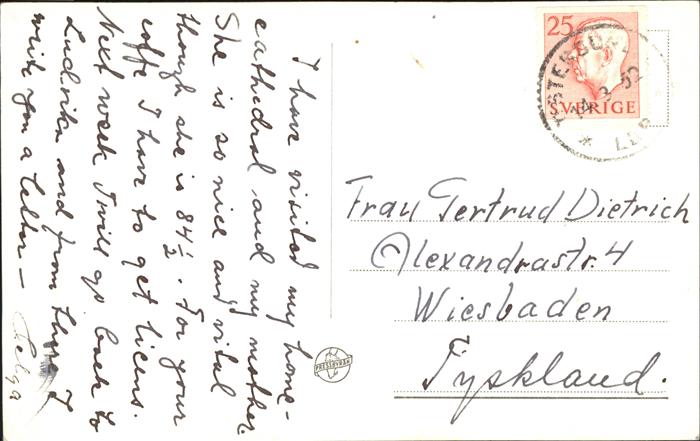 I have visited my home-
cathedral and my mother.
She is so nice and vital
though she is 84 1/2. For your
coffe I have to get licens.
Next week I will go back to
Ludvika and from there I
write you a letter —
Helga
25
SVERIGE
14 3 52
LBR
Frau Gertrud Dietrich
Alexandrastr. 4
Wiesbaden
Tyskland.
PRESSBYRÅN